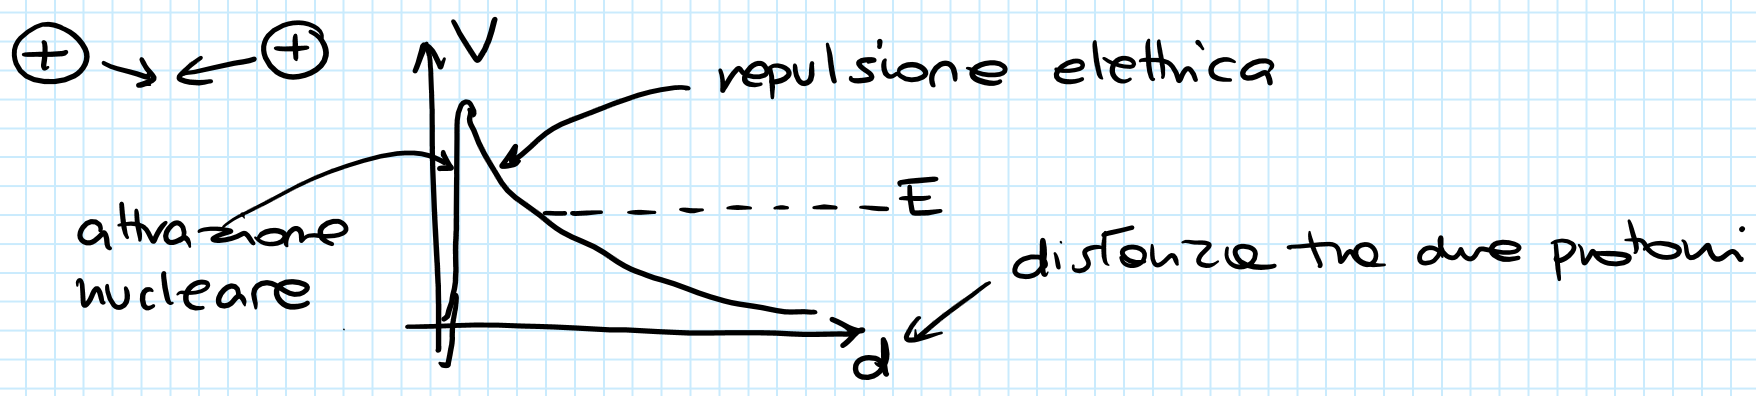 + +
V
repulsione elettrica
attrazione
nucleare
E
distanza tra due protoni
d